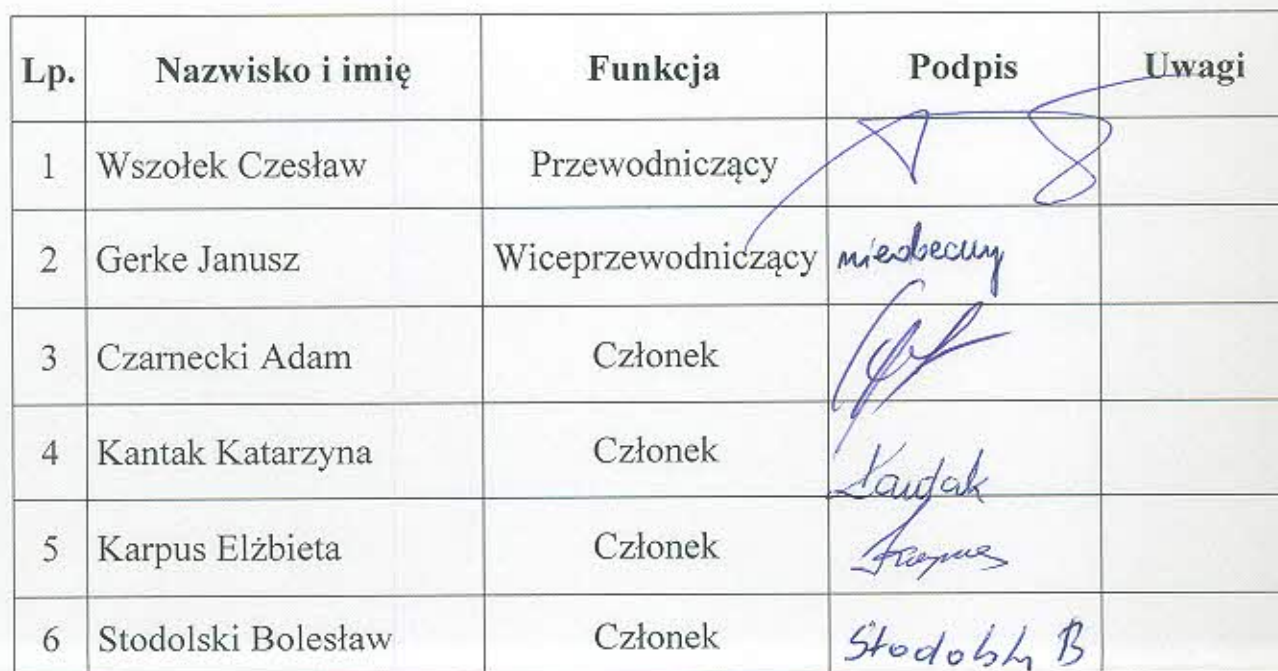 Lp. Nazwisko i imię Funkcja Podpis Uwagi
1 Wszołek Czesław Przewodniczący
2 Gerke Janusz Wiceprzewodniczący nieobecny
3 Czarnecki Adam Członek
4 Kantak Katarzyna Członek Kantak
5 Karpus Elżbieta Członek Karpus
6 Stodolski Bolesław Członek Stodolski B